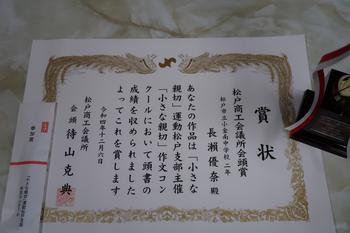 賞状
松戸商工会議所会頭賞
松戸市立小金南中学校 二年
長瀬優奈 殿
あなたの作品は「小さな
親切」運動松戸支部主催
「小さな親切」作文コン
クールにおいて頭書の
成績を収められました
よってこれを賞します
令和四年十二月六日
松戸商工会議所
会頭 待山克典
参加賞